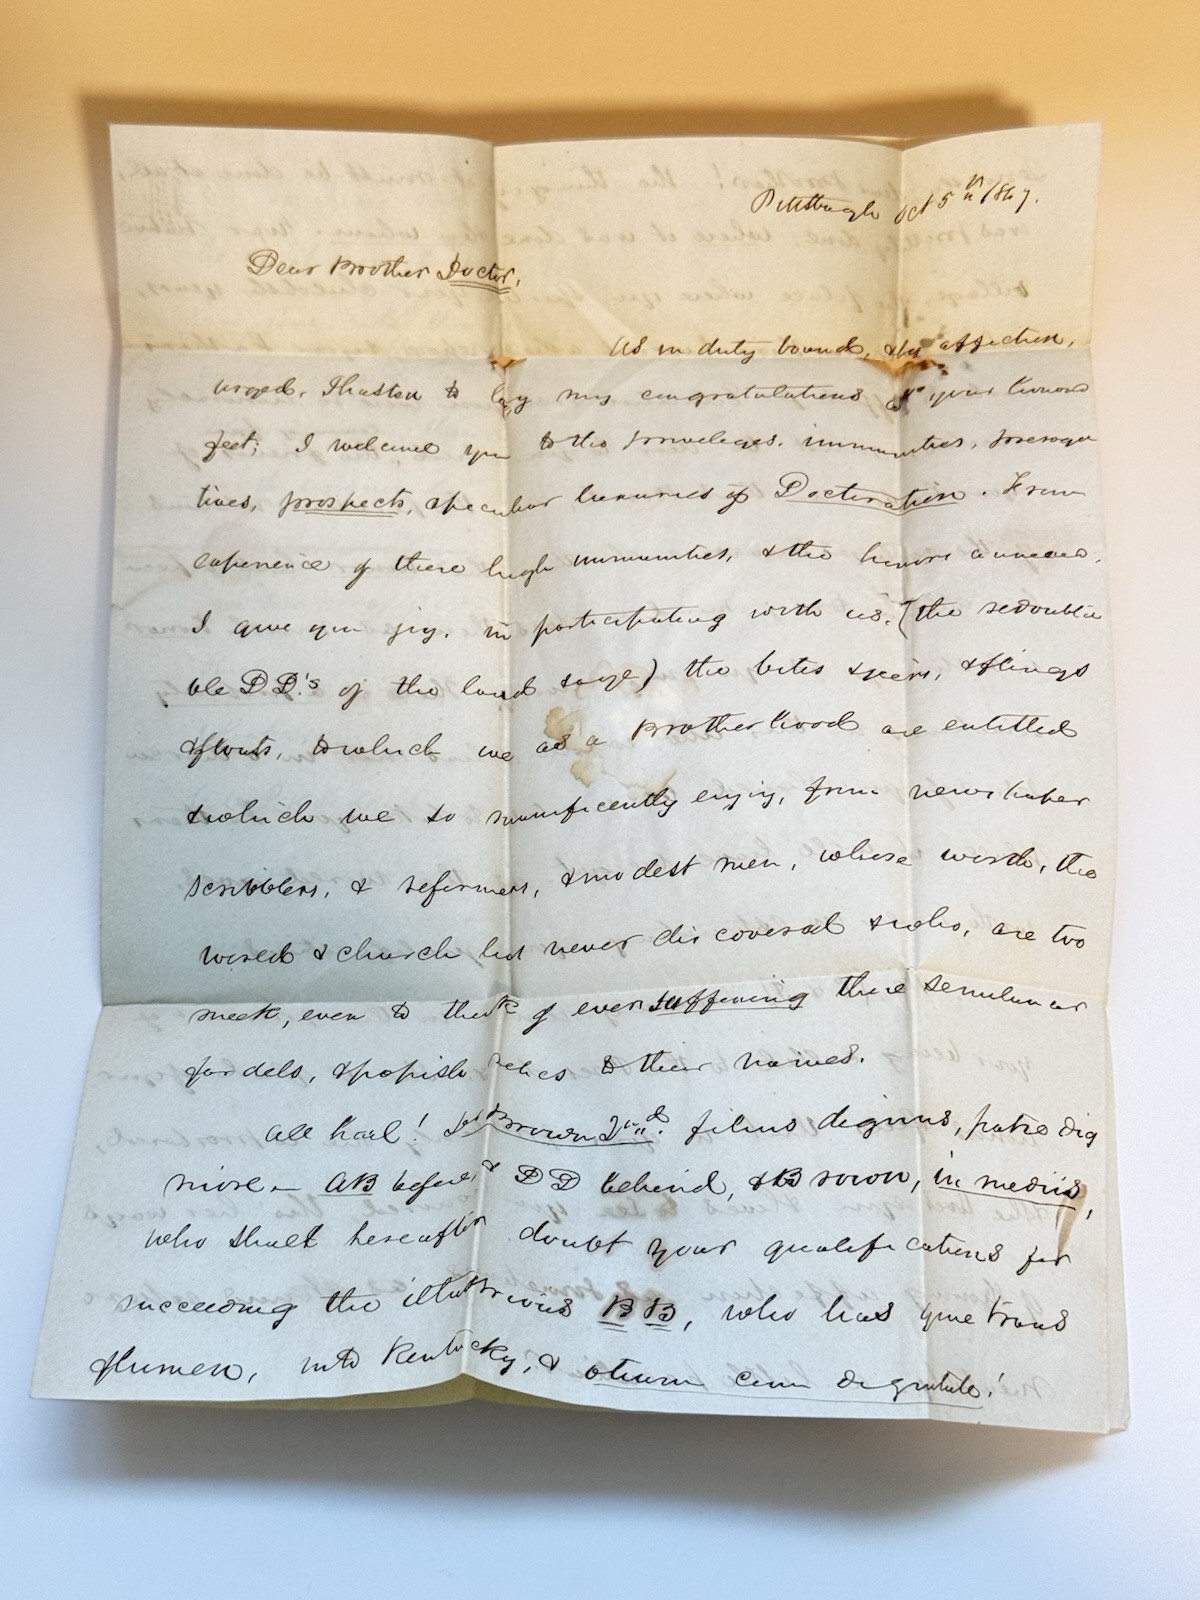 Pittsburgh Oct 5th 1867.
Dear Brother Doctor,
As in duty bound, & by affection,
urged, I hasten to lay my congratulations at your honord
feet; I welcome you to the priveleges, immunities, preroga
tives, prospects, & peculiar luxuries of Doctoration. From
experience of these high immunities, & the honors annexed,
I give you joy, in participating with us, (the redoubta
ble D D.'s of the land & age) the bites & jeers, & flings
& flouts, to which we as a Brotherhood are entitled
& which we so munificently enjoy, from newspaper
scribblers, & reformers, & modest men, whose worth, the
world & church had never discovered & who, are too
meek, even to think of ever suffering these semilunar
fardels, & popish relics to their names.
All hail! Brown 2nd. filius dignus, patre dig
niore — AB before & D D behind, & Brown, in medio,
who shall hereafter doubt your qualifications for
succeeding the illustrious BB, who has gone trans
flumen, into Kentucky, & otium cum dignitate!